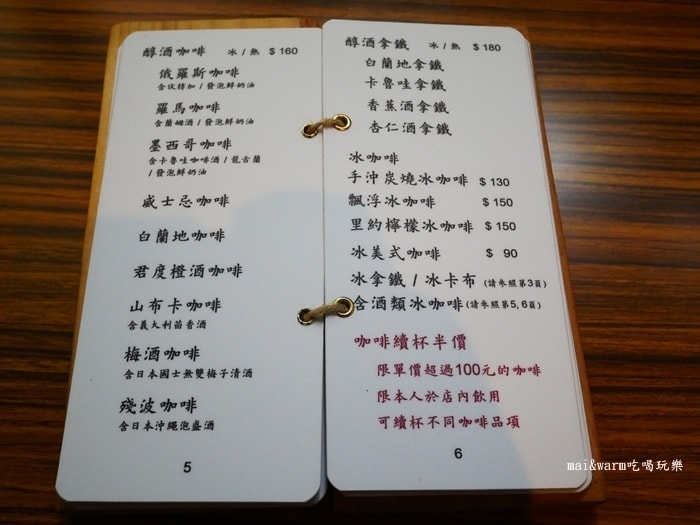 醇酒咖啡 冰/熱 $160
俄羅斯咖啡
含伏特加/發泡鮮奶油
羅馬咖啡
含蘭姆酒/發泡鮮奶油
墨西哥咖啡
含卡魯哇咖啡酒/龍舌蘭
/發泡鮮奶油
威士忌咖啡
白蘭地咖啡
君度橙酒咖啡
山布卡咖啡
含義大利茴香酒
梅酒咖啡
含日本國士無雙梅子清酒
殘波咖啡
含日本沖繩泡盛酒
5
醇酒拿鐵 冰/熱 $180
白蘭地拿鐵
卡魯哇拿鐵
香蕉酒拿鐵
杏仁酒拿鐵
冰咖啡
手沖炭燒冰咖啡 $130
飄浮冰咖啡 $150
里約檸檬冰咖啡 $150
冰美式咖啡 $ 90
冰拿鐵/冰卡布(請參照第3頁)
含酒類冰咖啡(請參照第5,6頁)
咖啡續杯半價
限單價超過100元的咖啡
限本人於店內飲用
可續杯不同咖啡品項
6
mai&warm吃喝玩樂